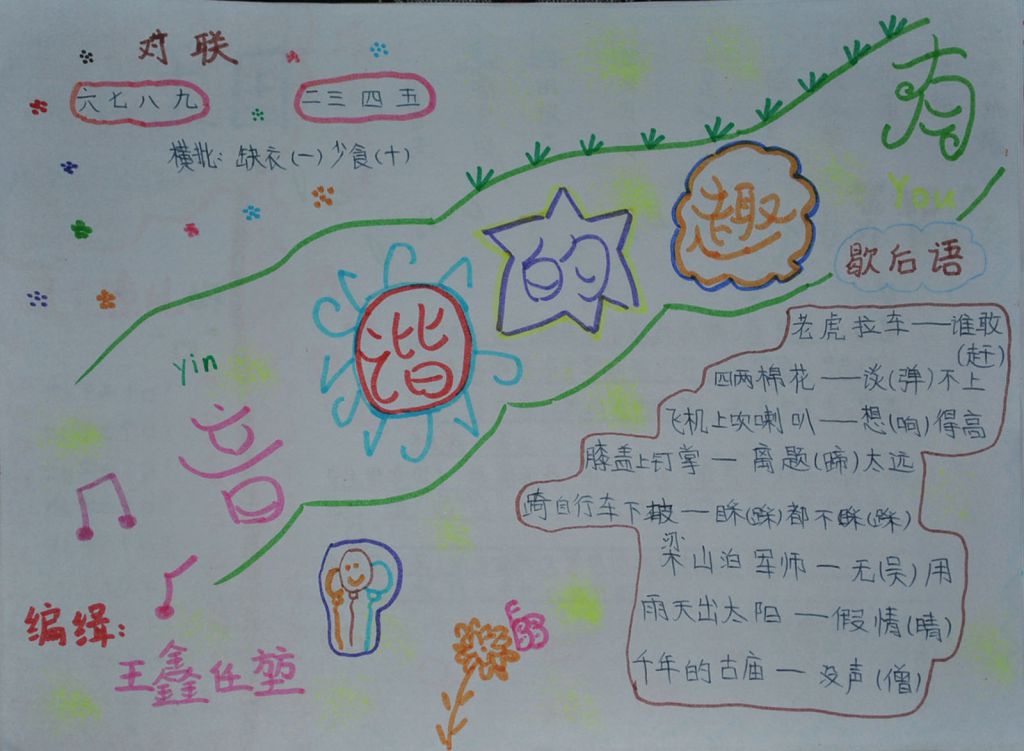 对联
六七八九
二三四五
横批：缺衣(一)少食(十)
有
You
趣
的
谐
yin
音
歇后语
老虎拉车——谁敢
(赶)
四两棉花——谈(弹)不上
飞机上吹喇叭——想(响)得高
膝盖上钉掌—离题(蹄)太远
骑自行车下坡—睬(踩)都不睬(踩)
梁山泊军师—无(吴)用
雨天出太阳——假情(晴)
千年的古庙—没声(僧)
编缉：
王鑫任堃